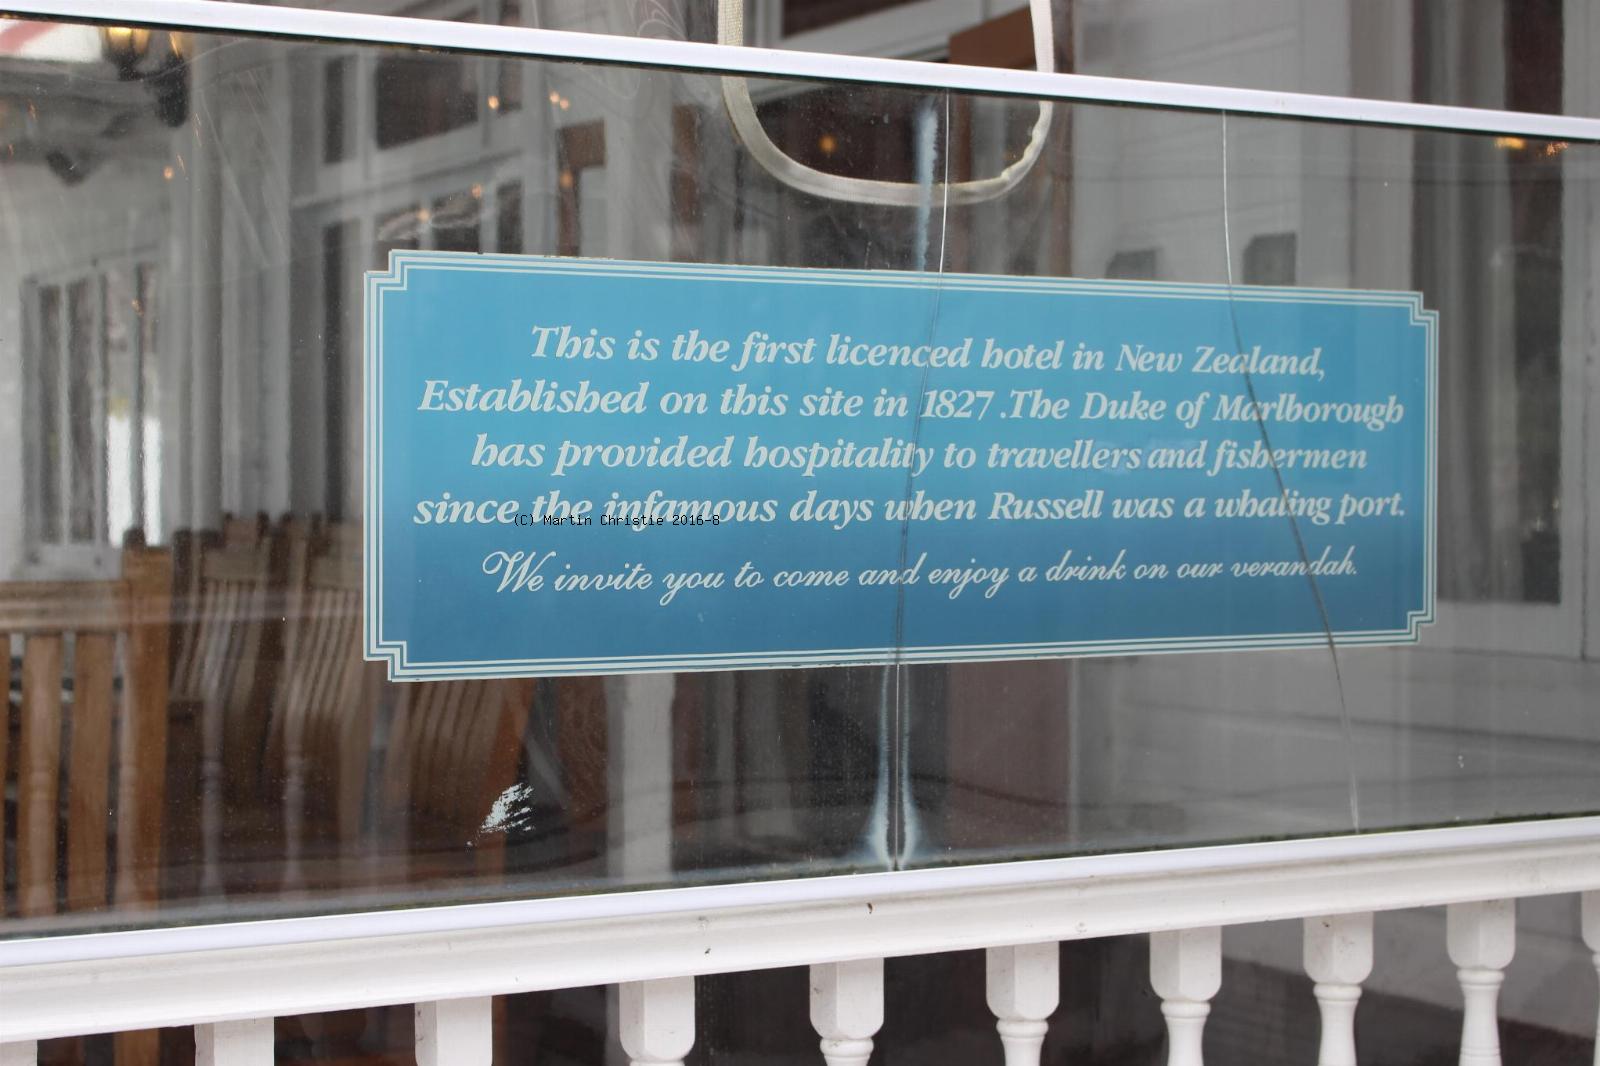 This is the first licenced hotel in New Zealand,
Established on this site in 1827 .The Duke of Marlborough
has provided hospitality to travellers and fishermen
since the infamous days when Russell was a whaling port.
(C) Martin Christie 2016-8
We invite you to come and enjoy a drink on our verandah.